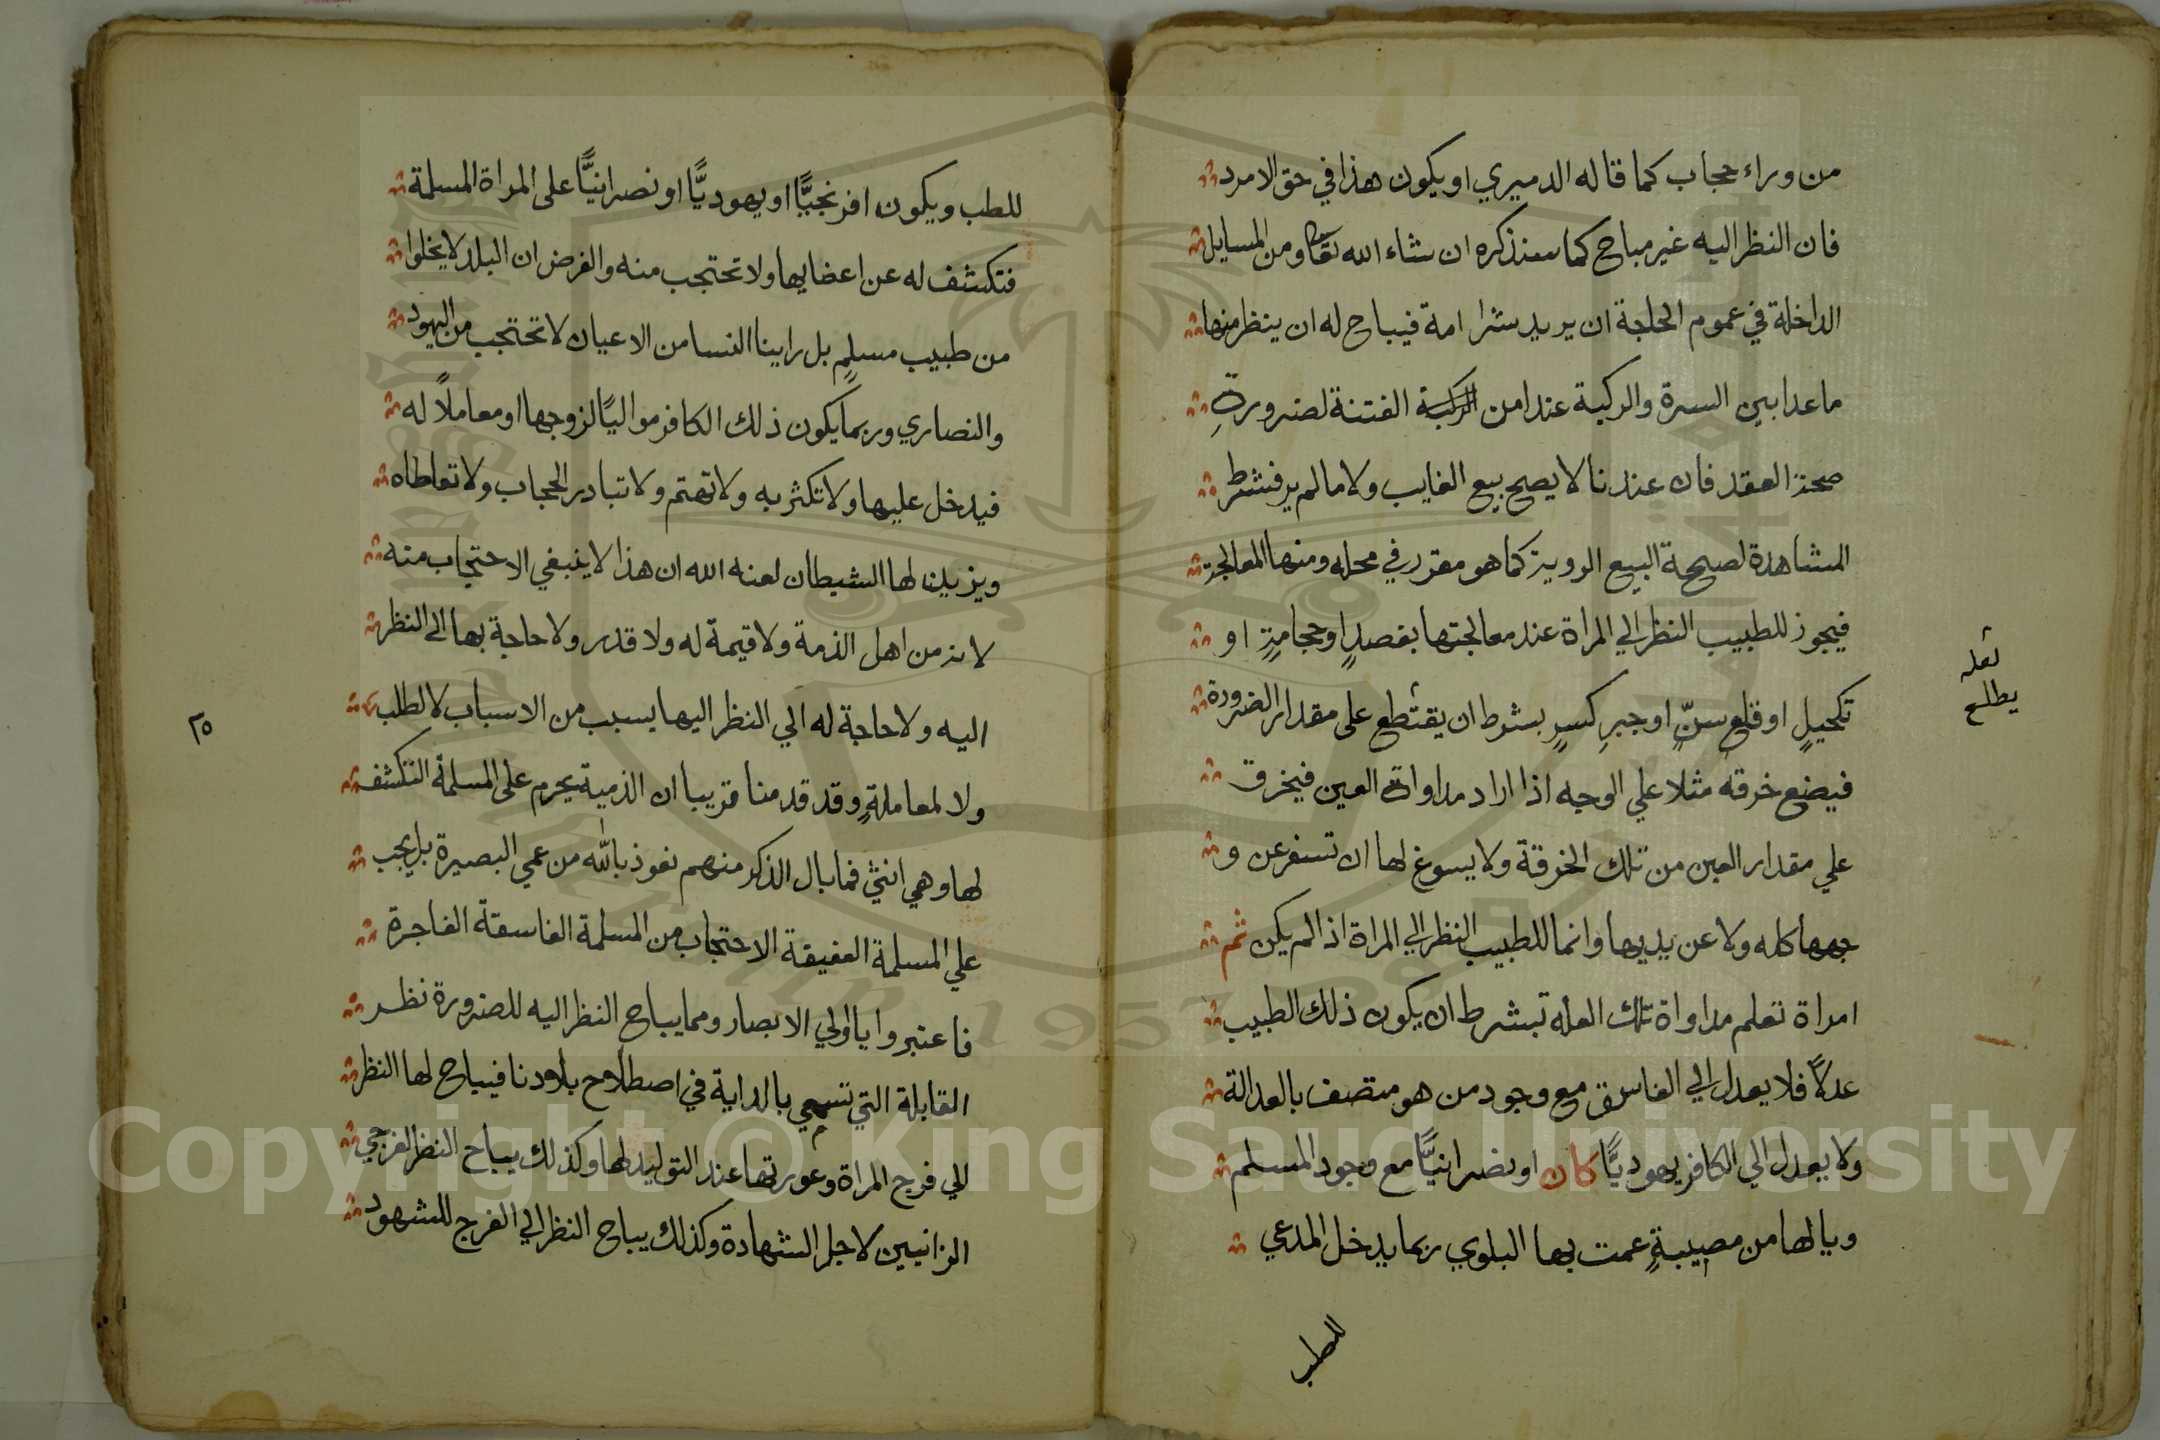 من وراء حجاب كما قاله الدميري او يكون هذا في حق الامرد
فان النظر اليه غير مباح كما سنذكره ان شاء الله تعا ومن المسايل
الداخلة في عموم الحاجة ان يريد شرا امة فيباح له ان ينظر منها
ما عدا بين السرة والركبة عند امن الركبة الفتنة لضرورةِ
صحة العقد فان عندنا لا يصح بيع الغايب ولا ما لم ير فشرط
المشاهدة لصحة البيع الروية كما هو مقرر في محله ومنها المعالجة
فيجوز للطبيب النظر الي المراة عند معالجتها بفصدٍ او حجامةٍ او
تكحيلٍ او قلع سنٍّ او جبرِ كسرٍ بشرط ان يقتطع على مقدار الضرورة
لعله
يطلع
فيضع خرقه مثلا علي الوجه اذا اراد مداواة العين فيخرق
علي مقدار العين من تلك الخرقة ولا يسوغ لها ان تسفر عن و
جهها كله ولا عن يديها وانما للطبيب النظر الي المراة اذا لم يكن ثم
امراة تعلم مداواة تلك العلة تبشرط ان يكون ذلك الطبيب
عدلاً فلا يعدل الي الفاسق مع وجود من هو متصف بالعدالة
ولا يعدل الي الكافر يهوديًّا كان او نصرانيًّا مع وجود المسلم
ويالها من مصيبةٍ عمت بها البلوي ربما يدخل المدعي
للطب
للطب ويكون افرنجيًّا او يهوديًّا او نصرانيًّا على المراة المسلمة
فتكشف له عن اعضايها ولا تحتجب منه والفرض ان البلد لا يخلوا
من طبيب مسلمٍ بل راينا النسا من الاعيان لا تحتجب من اليهود
والنصاري وربما يكون ذلك الكافر مواليًا لزوجها او معاملاً له
فيدخل عليها ولا تكثر به ولا تهتم ولا تبادر الحجاب ولا تعاطاه
ويزين لها الشيطان لعنه الله ان هذا لا ينبغي الاحتجاب منه
لانه من اهل الذمة ولا قيمة له ولا قدر ولا حاجة بها الى النظر
اليه ولا حاجة له الي النظر اليها بسبب من الاسباب لا لطلب
٢٥
ولا لمعاملةٍ وقد قدمنا قريبا ان الذمية يحرم على المسلمة التكشف
لها وهي انثي فما بال الذكر منهم نعوذ بالله من عمي البصيرة بل يجب
علي المسلمة العفيفة الاحتجاب من المسلمة الفاسقة الفاجرة
فاعتبروا يا اولي الابصار ومما يباح النظر اليه للضرورة نظر
القابلة التي تسمي بالداية في اصطلاح بلادنا فيباح لها النظر
الي فرج المراة وعورتها عند التوليد لها وكذلك يباح النظر لفرجي
الزانيين لاجل الشهادة وكذلك يباح النظر الي الفرج للشهود
Copyright © King Saud University
1957